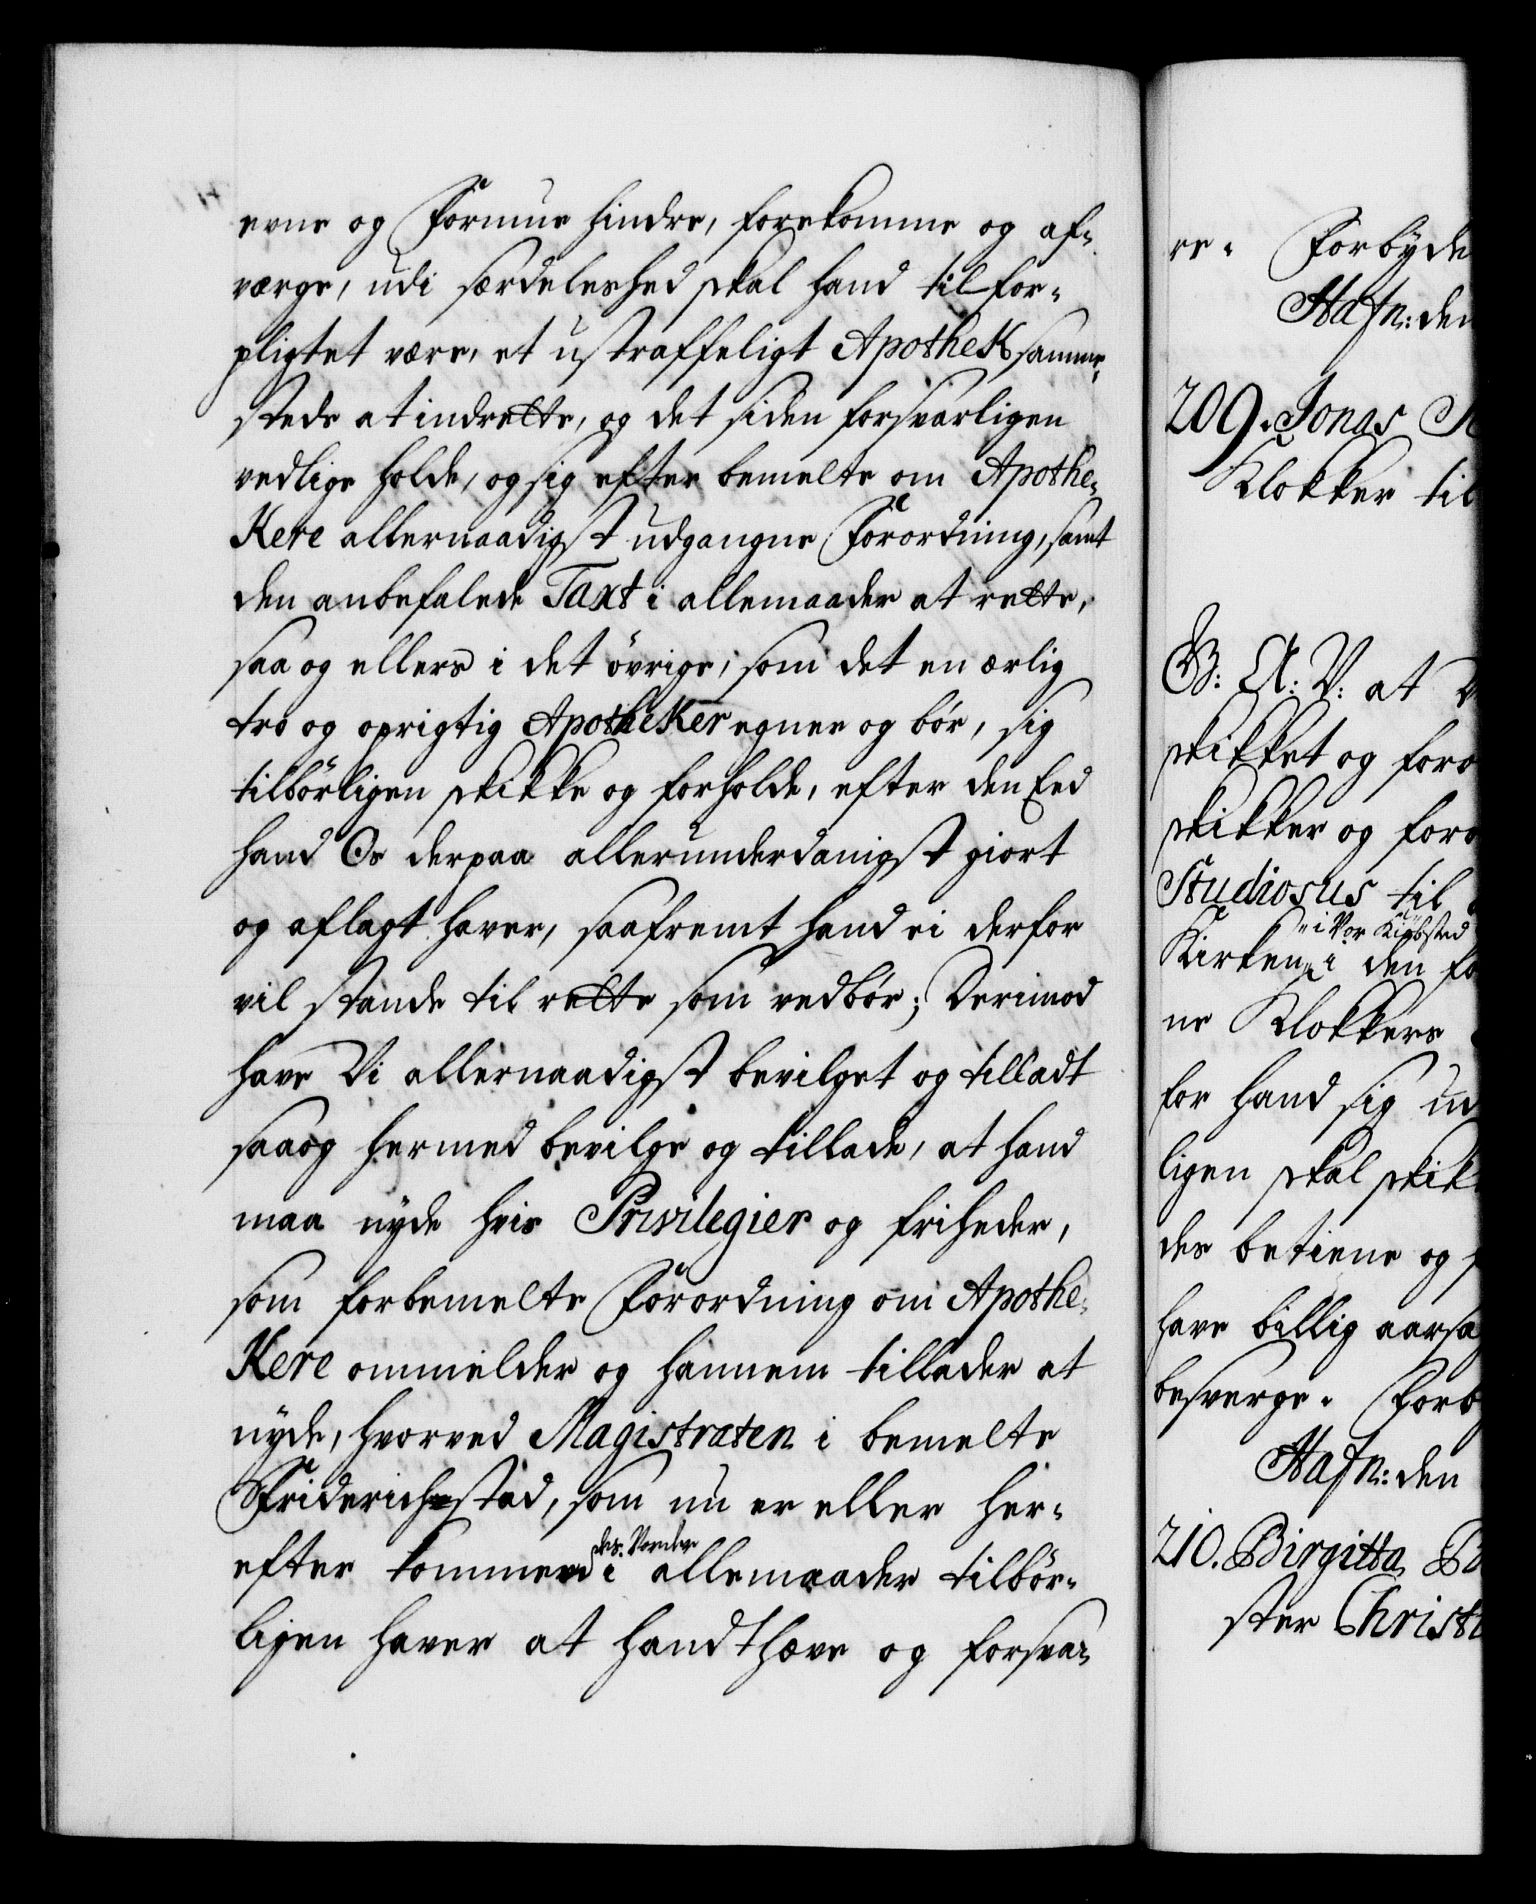 evne og Formue hindre, forekomme og af-
værge, udi særdeleshed skal hand tilfor-
pligtet være, et ustraffeligt Apothek samme-
steds at indrette, og det siden forsvarligen
vedlige holde, og sig efter bemelte om Apothe-
Kere allernaadigst udgangne Forordning, samt
den anbefalede Taxt i allemaader at rette,
saa og ellers i det övrige, som det en ærlig
tro og oprigtig Apotheker egner og bör, sig
tilbörligen skikke og forholde, efter den Eed
hand Os derpaa allerunderdanigst giort
og aflagt haver, saafremt hand ei derfor
vil stande til rette som vedbör; Derimod
have Vi allernaadigst bevilget og tilladt
saaog hermed bevilge og tillade, at hand
maa nyde hvis Privilegier og friheder,
som forbemelte Forordning om Apothe-
Kere ommelder og hannem tillader at
nyde, hvorved Magistraten i bemelte
Friderichstad, som nu er eller her-
efter kommendes vorder i allemaader tilbör-
ligen haver at handthæve og forsva-
re. Forbyde
Hafn: den
209. Jonas
Klokker til
G: A: V: at
skikket og foro
skikker og foro
Studiosus til
Kirken i Vor Kiøbsted i den fo
ne Klokkers
for hand sig ud
ligen skal skik
des betiene og
have billig aarsa
besverge. Forb
Hafn: den
210. Birgitta
ster Christ